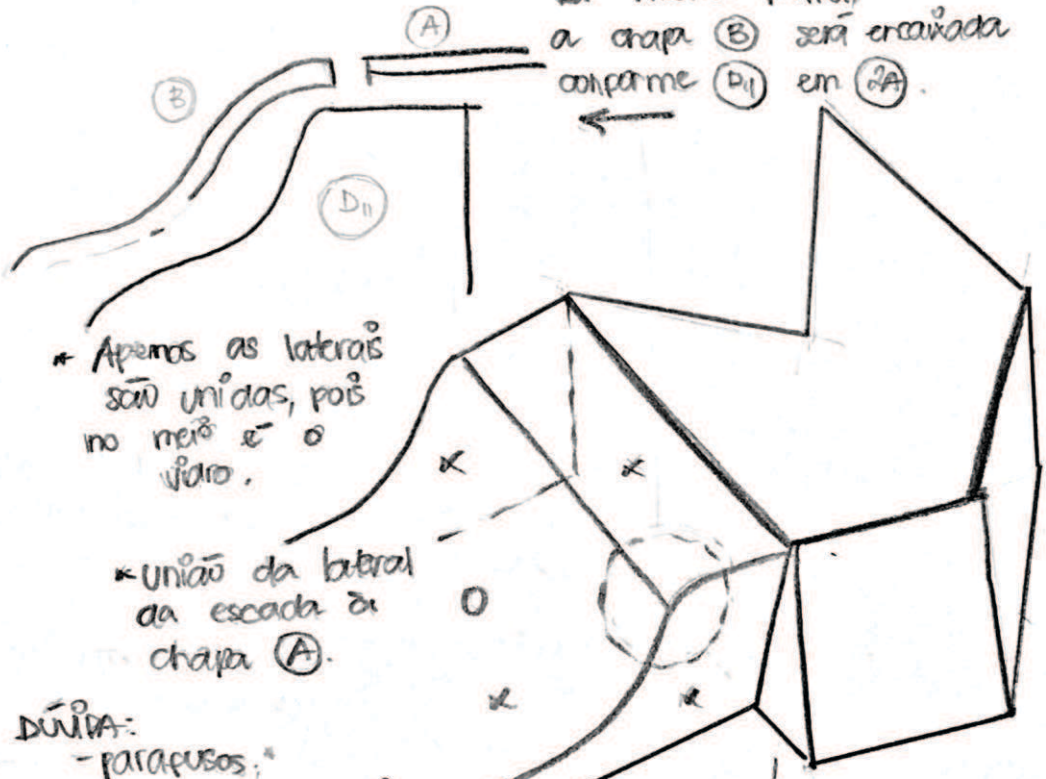 A
a chapa B será encaixada
conforme D11 em 2A.
B
D11
* Apenas as laterais
são unidas, pois
no meio é o
vidro.
* união da lateral
da escada à
chapa A.
DÚVIDA:
- parafusos: